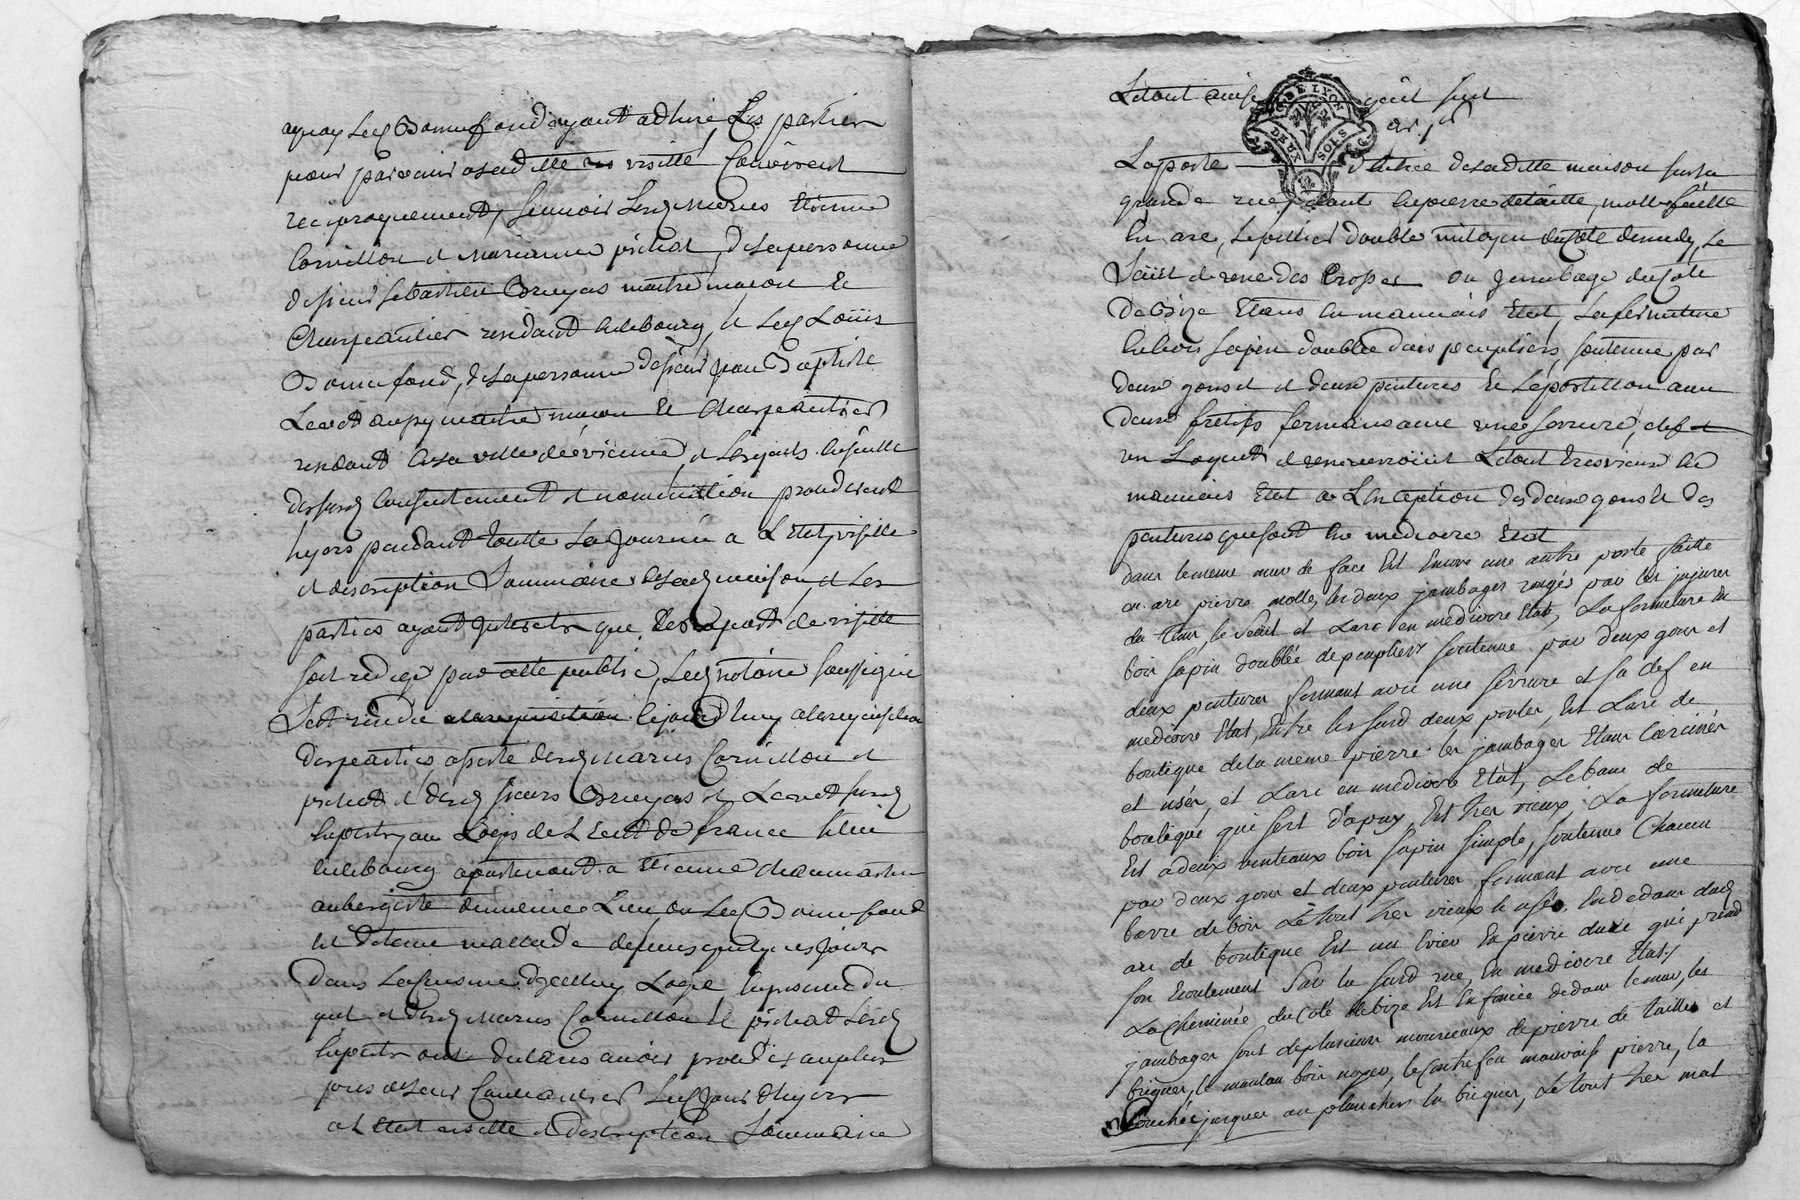 aquoy Led Bonnefond ayant adhéré Les parties
pour parvenir a Laditte visitte Convinrent
reciproquement, sçavoir Lesd Maries Etienne
Cornillon et Marianne pichat, de la personne
de sieur Sebastien Bruyas maitre maçon Et
Charpentier residant Audit bourg, et Led Loüis
Bonnefond, de la personne de sieur jean Baptiste
Levet aussy maitre maçon Et Charpentier
residant En la ville de vienne, et Lesquels Ensuitte
desdits Consentement et nomination procederent
hyers pendant toutte La Journée a L'Etat, visitte
et description Sommaire de lad maison, et Les
parties ayant Interets que Le raport de visitte
soit redigé par acte public, Led notaire soussigné
S'est rendu cejourd'huy a la requisition
des parties assisté desd Maries Cornillon et
pichat et desd sieurs Bruyas et Levet susd
Experts, au Logis de L'Ecut de france scitué
Audit bourg apartenant a Etienne
aubergiste du même Lieu, ou Led Bonnefond
Est detenu mallade depuis quelques jours
dans La Cuisine d'icelluy Logis En presence du
quel et desd Maries Cornillon Et pichat Lesd
Experts ont declarés avoir procedé
Led jour d'hyers
a L'Etat visitte et description Sommaire
La porte d'entrée de laditte maison sur la
grande rue, Etant En pierre de taille, molle, faitte
En arc, Le pillier double mitoyen du Coté de midy, Le
Seüil et rendes Crosses ou Jambage du Coté
De Bize Etans En mauvais Etat, La fermeture
En bois sapin doublée dais peupliers, soutenue par
deux gons et deux pentures Et Le portillon avec
deux fretifs fermans avec une serrure, clef et
un Loquet Le tout tres vieux En
mauvais Etat a L'Exception des deux gons Et des
pentures qui sont En mediocre Etat
dans le meme mur de face Est Encore une autre porte faitte
en arc pierre molle, les deux jambages rongés par les injures
du tems, le Seuil et Larc en mediocre Etat, La fermeture En
bois sapin doublée de peupliers soutenue par deux gons et
deux pentures fermant avec une serrure et sa clef en
mediocre Etat, Entre les susd deux portes, Est Larc de
boutique de la meme pierre les jambages Etans Carcinés
et usés, et Larc en mediocre Etat, Le banc de
boutique qui sert d'apuy Est tres vieux, La fermeture
Est a deux venteaux bois sapin simple, soutenue Chacun
par deux gons et deux pentures fermant avec une
barre de bois Le tout tres vieux et usés, En dedans dud
arc de boutique Est un Evier En pierre dure qui prend
son Ecoulement Sur la susd rue, En mediocre Etat,
La Cheminée du Coté de bize Est Enfoncée dedans le mur, les
jambages sont de plusieurs mourceaux de pierre de tailles et
briques, le manteau bois noyer, le Contrefeu mauvaise pierre, la
bouchée jusques au planchers En briques, Le tout tres mal